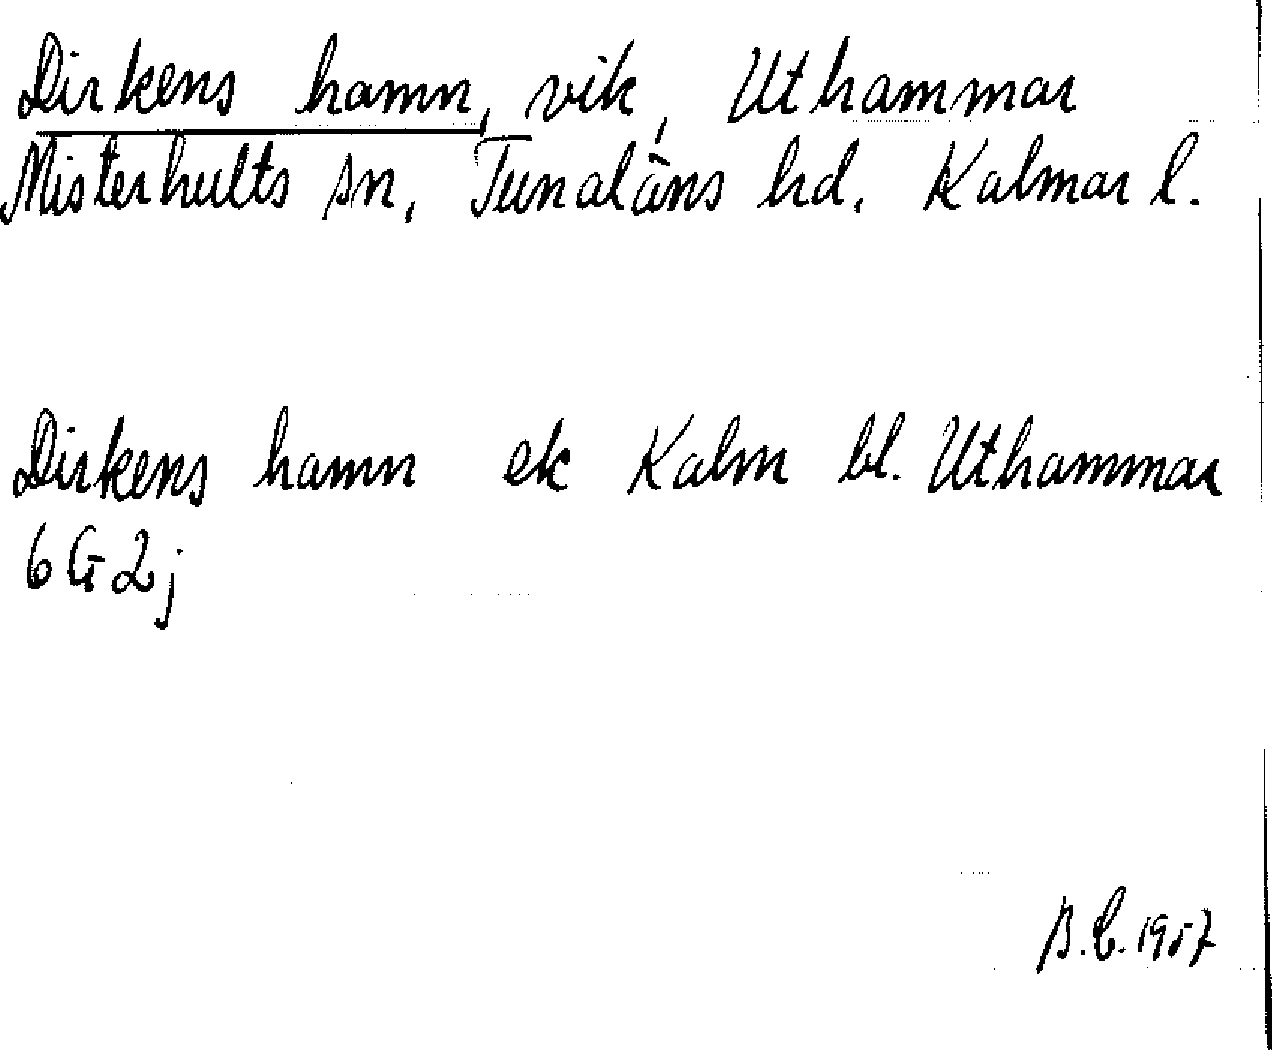 Dirkens hamn, vik, Uthammar
Misterhults sn, Tunaläns hd. Kalmar l.
Dirkens hamn ek Kalm bl. Uthammar
6G2j
B.C. 1957